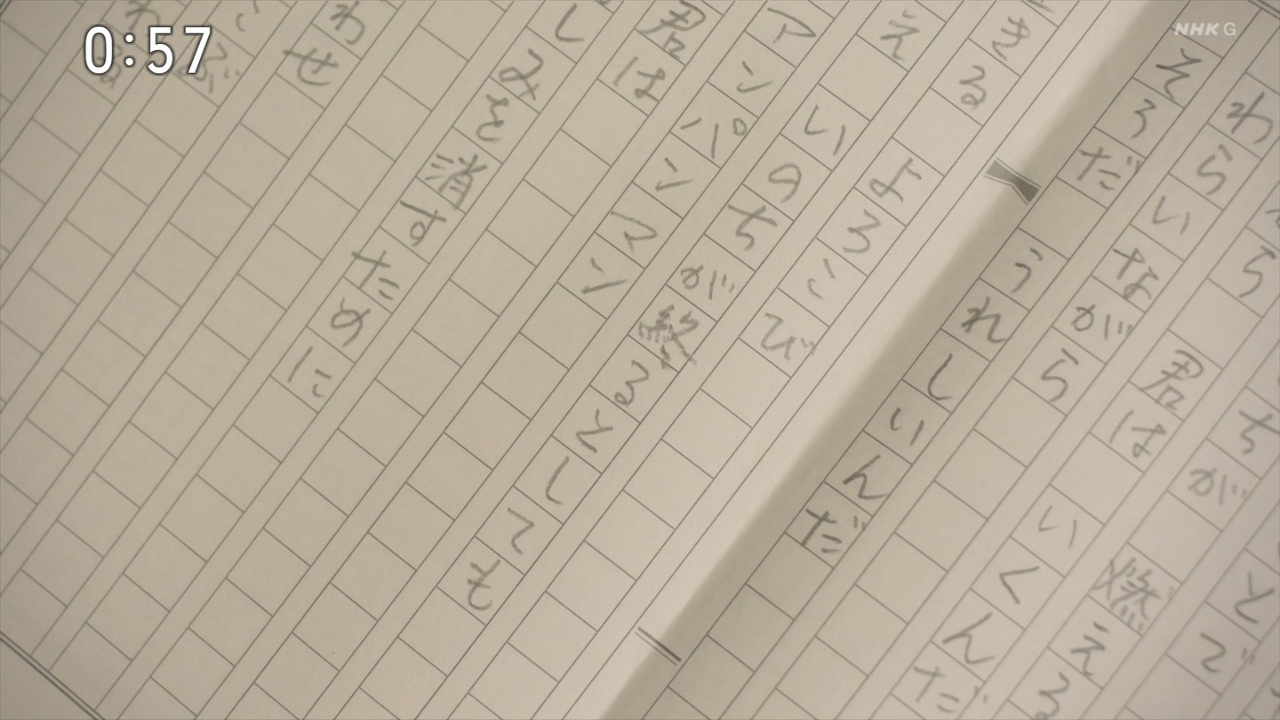 0:57
NHK G
とで
ちが 燃える
ら 君は いくんだ
わらいながら
そうだ うれしいんだ
きる よろこび
え いのちが終るとしても
アンパンマン
君は
しみを消すために
わせ